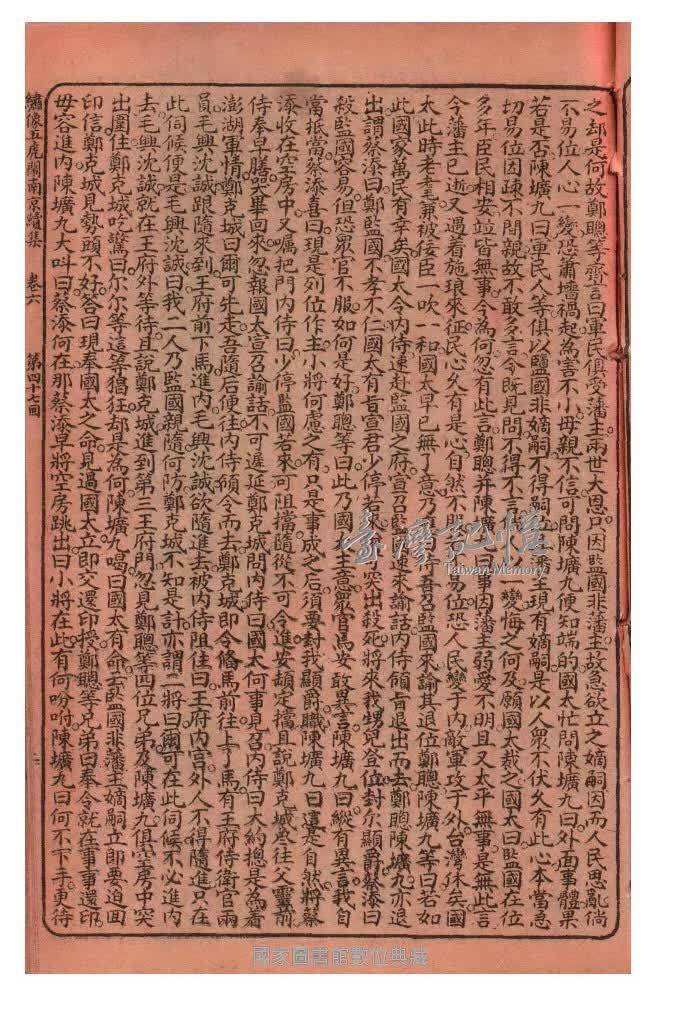 之却是何故鄭聰等齊言曰軍民俱受藩主兩世大恩只因監國非藩主故急欲立之嫡嗣因而人民思亂倘
不易位人心一變恐蕭墻禍起為害不小母親不信可問陳壙九便知端的國太忙問陳壙九曰外面軍體果
若是否陳壙九曰軍民人等俱以監國非嫡嗣不得嗣 藩主現有嫡嗣是以人衆不伏久有此心本當急
切易位因疎不間親故不敢多言今既見問不得不言 變悔之何及願國太裁之國太曰監國在位
多年臣民相安並皆無事今為何忽有此言鄭聰并陳壙九曰事因藩主弱愛不明且又太平無事是無此言
今藩主已逝又遇着施琅來征民心久有是心自然不 易位恐人民變于內敵軍攻于外台灣休矣國
太此時老耄兼被佞臣一吹一和國太早已無了意乃 吾召監國來諭其退位鄭聰陳壙九等曰若如
此國家萬民有幸矣國太令內侍速赴監國之府宣召監 速來諭話內侍領旨退出而去鄭聰陳壙九亦退
出謂蔡添曰鄭監國不孝不仁國太有旨宣君少停若 可突出殺死將來我甥兒登位封尔顯爵蔡添曰
殺監國容易但恐眾官不服如何是好鄭聰等曰此乃國 主意眾官焉安敢異言陳壙九曰縱有異言我自
當抵當蔡添喜曰現是列位作主小將何慮之有只是事成之后須要對我顯爵職陳壙九曰這是自然將蔡
添收在空房中又囑把門內侍曰少停監國若來可阻擋隨從不可令進安頓定擋且說鄭克城悉往父靈前
侍奉早膳哭畢回來忽報國太宣召諭話不可遲延鄭克城問內侍曰國太何事見召內侍曰大約總是為着
澎湖軍情鄭克城曰爾可先走吾隨后便往內侍領令而去鄭克城即令俻馬前往上了馬有王府侍衛官兩
員毛興沈誠跟隨來到王府前下馬進內毛興沈誠欲隨進去被內侍阻住曰王府內宮外人不得隨進只在
此伺候便是毛興沈誠曰我二人乃監國親隨何防鄭克城不知是計亦謂二將曰爾可在此伺候不必進內
去毛興沈誠就在王府外等待且說鄭克城進到第三王府門忽見鄭聰等四位兄弟及陳壙九俱空房中突
出圍住鄭克城吃驚曰尔尔等這等猖狂却是為何陳壙九喝曰國太有命云監國非藩主嫡嗣立即要追回
印信鄭克城見勢頭不好答曰現奉國太之命見過國太立即交還印授鄭聰等兄弟曰奉令就在事事還印
毋容進內陳壙九大叫曰蔡添何在那蔡添早將空房跳出曰小將在此有何吩咐陳壙九曰何不下手更待
繡像五虎鬧南京續集 卷六 第四十七回 二
臺灣記憶
Taiwan Memory
國家圖書館數位典藏